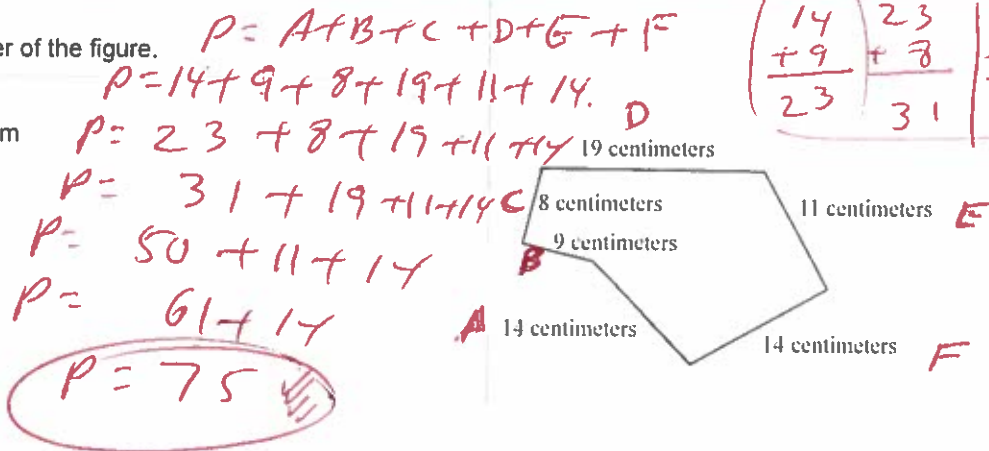 er of the figure.
P = A+B+C+D+E+F
P=14+9+8+19+11+14.
m
P= 23+8+19+11+14
P= 31+19+11+14
P= 50+11+14
P= 61+14
P=75
14
+9
23
23
+8
31
D
19 centimeters
C 8 centimeters
11 centimeters E
B 9 centimeters
A 14 centimeters
14 centimeters F